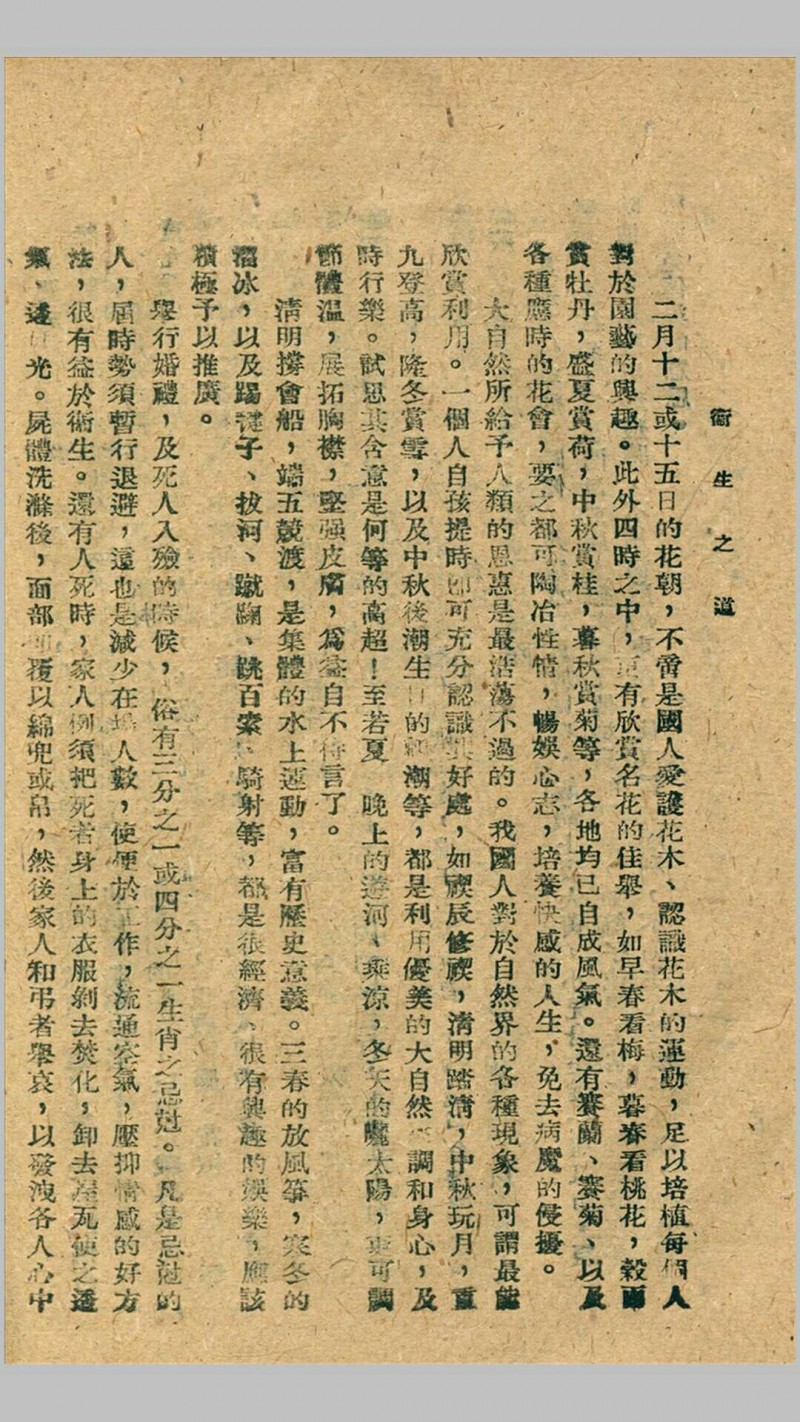 衞生之道
二月十二或十五日的花朝，不啻是國人愛護花木、認識花木的運動，足以培植每個人
對於園藝的興趣。此外四時之中，更有欣賞名花的佳舉，如早春看梅，暮春看桃花，穀雨
賞牡丹，盛夏賞荷，中秋賞桂，暮秋賞菊等，各地均已自成風氣。還有賽蘭、賽菊、以及
各種應時的花會，要之都可陶冶性情，暢娛心志，培養快感的人生，免去病魔的侵擾。
大自然所給予人類的恩惠是最浩蕩不過的。我國人對於自然界的各種現象，可謂最能
欣賞利用。一個人自孩提時即可充分認識其好處，如禊辰修禊，清明踏淸，中秋玩月，重
九登高，隆冬賞雪，以及中秋後潮生日的觀潮等，都是利用優美的大自然　調和身心，及
時行樂。試思其含意是何等的高超！至若夏　晚上的遊河、乘涼，冬天的曬太陽，更可調
節體溫，展拓胸襟，堅强皮膚，爲益自不待言了。
清明撐會船，端五競渡，是集體的水上運動，富有歷史意義。三春的放風箏，寒冬的
溜冰，以及踢毽子、拔河、蹴鞠、跳百索、騎射等，都是很經濟、很有興趣的娛樂，應該
積極予以推廣。
舉行婚禮，及死人入殮的時候，俗有三分之一或四分之一生肖之忌尅。凡是忌尅的
人，屆時勢須暫行退避，這也是減少在場人數，使便於工作，流通空氣，壓抑情感的好方
法，很有益於衞生。還有人死時，家人例須把死者身上的衣服剝去焚化，卸去屋瓦使之透
氣、透日光。屍體洗滌後，面部　覆以綿兜或帛，然後家人和弔者舉哀，以發洩各人心中